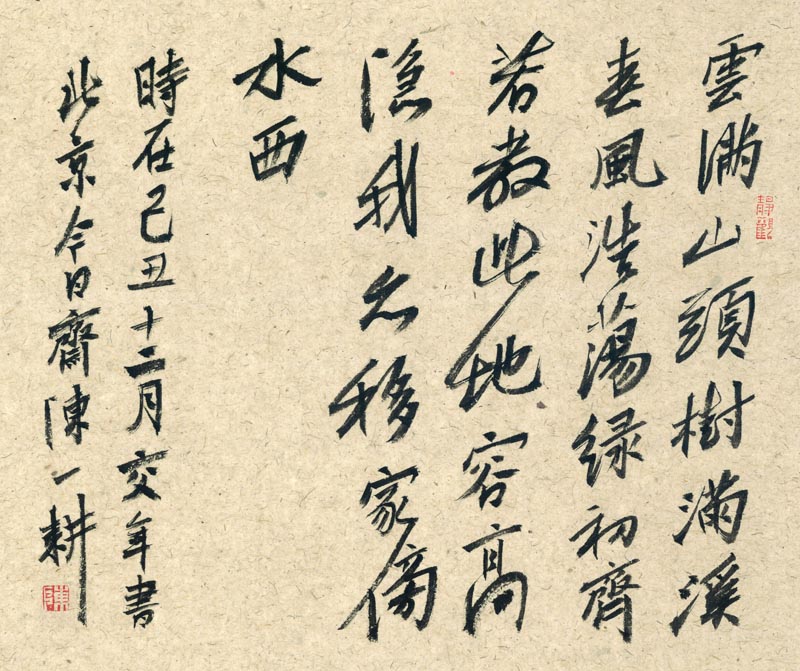 雲満山頭樹滿溪
春風浩蕩绿初齊
若教此地容高
隐我亦移家傍
水西
時在己丑十二月交年書
北京今日齋陳一耕